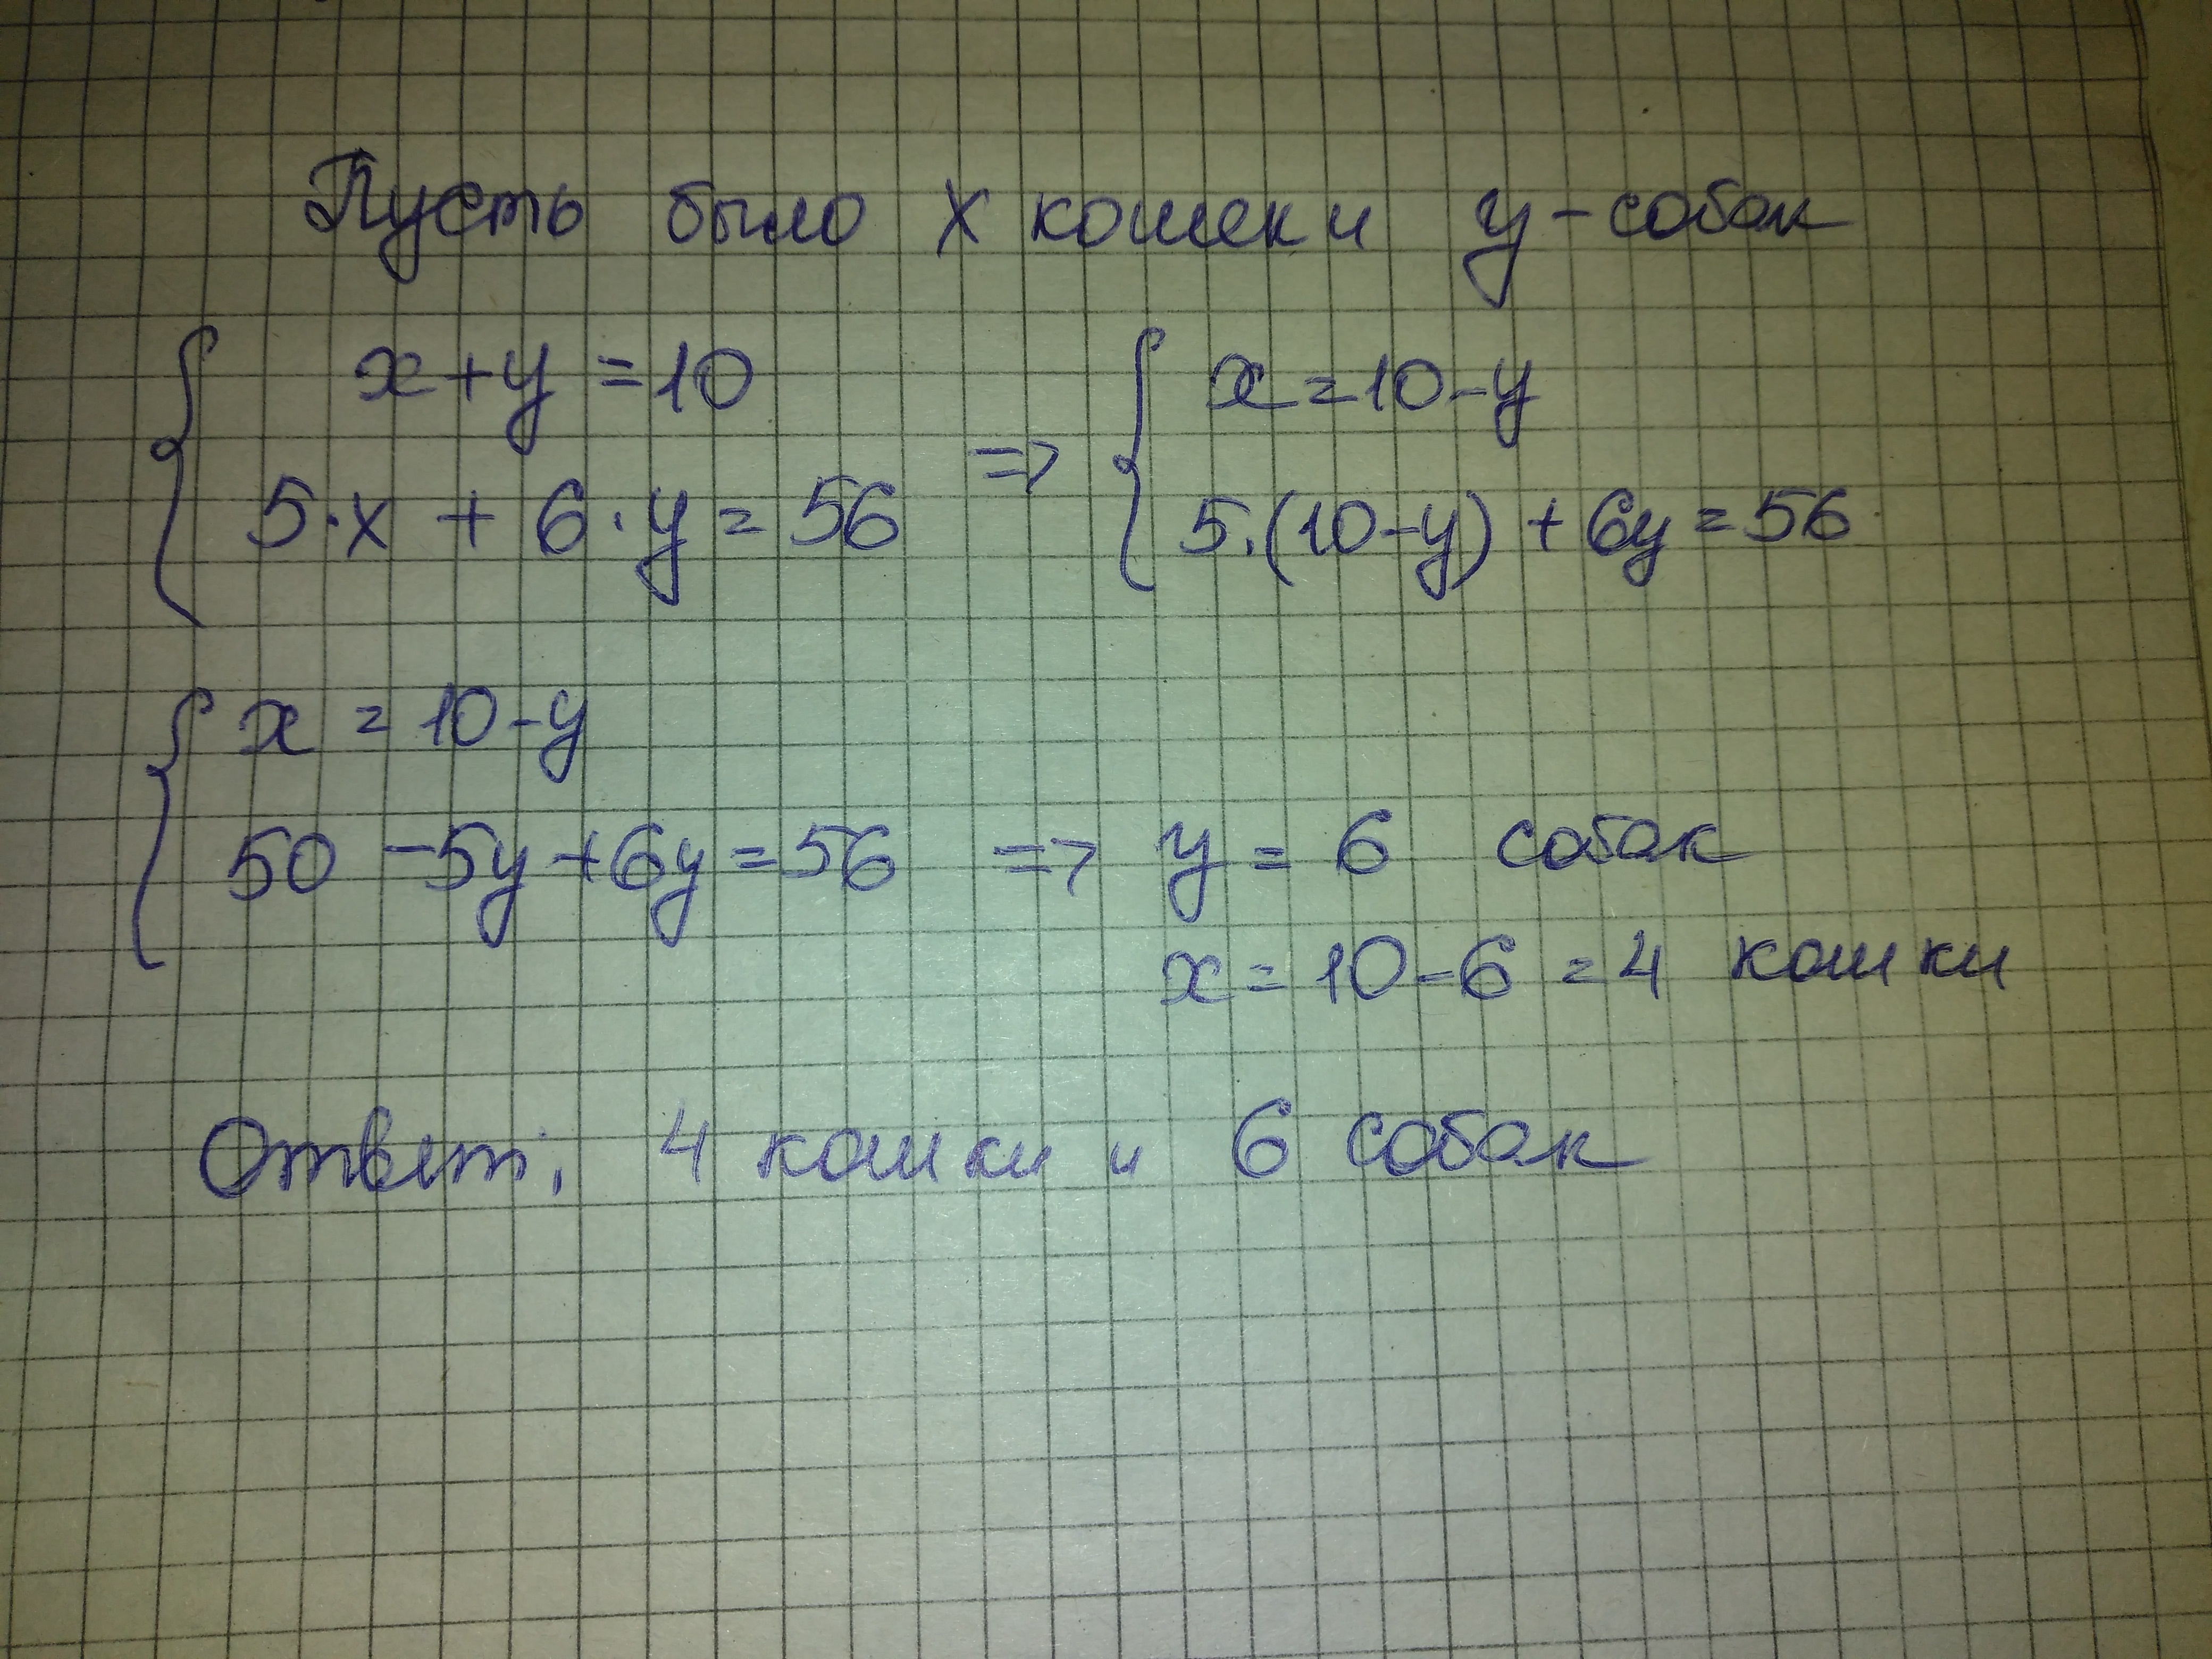 Пусть было х кошек и у - собак
{ x + y = 10
5·x + 6·y = 56 => { x = 10 - y
5·(10-y) + 6y = 56
{ x = 10 - y
50 - 5y + 6y = 56 => y = 6 собак
x = 10 - 6 = 4 кошки
Ответ: 4 кошки и 6 собак